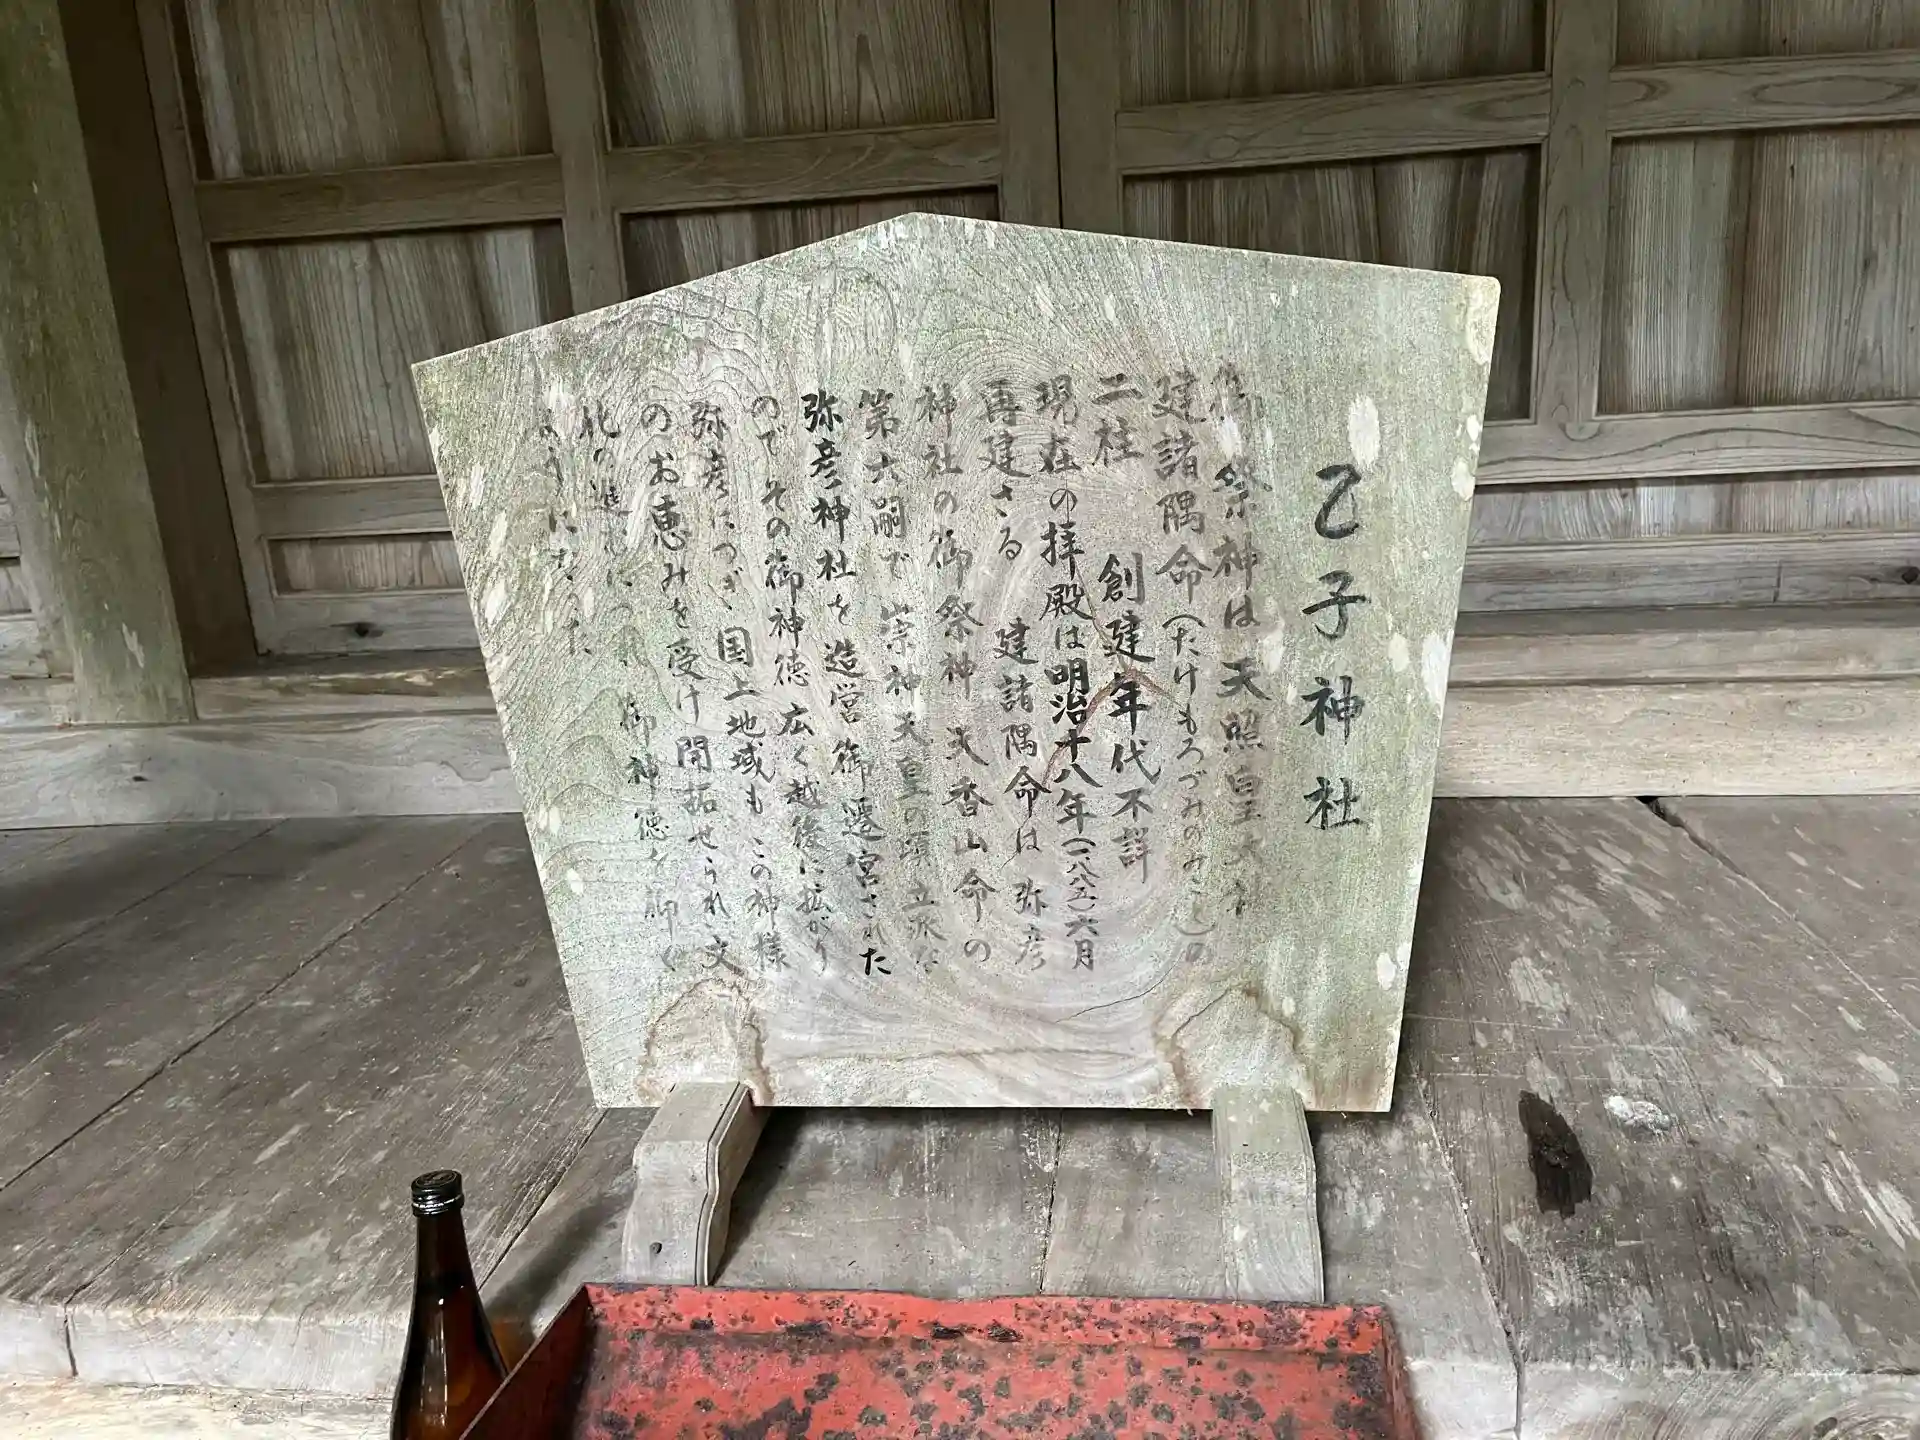 乙子神社
御祭神は天照皇大神
建諸隅命(たけもろづみのみこと)の
二柱 創建年代不詳
現在の拝殿は明治十八年(一八八五)六月
再建さる 建諸隅命は弥彦
神社の御祭神天香山命の
第六嗣で崇神天皇の頃立派な
弥彦神社を造営御遷宮された
のでその御神徳広く越後に拡がり
弥彦につぎ国上地域もこの神様
のお恵みを受け開拓せられ文
化の進むにつれ御神徳を仰ぐ
ようになった